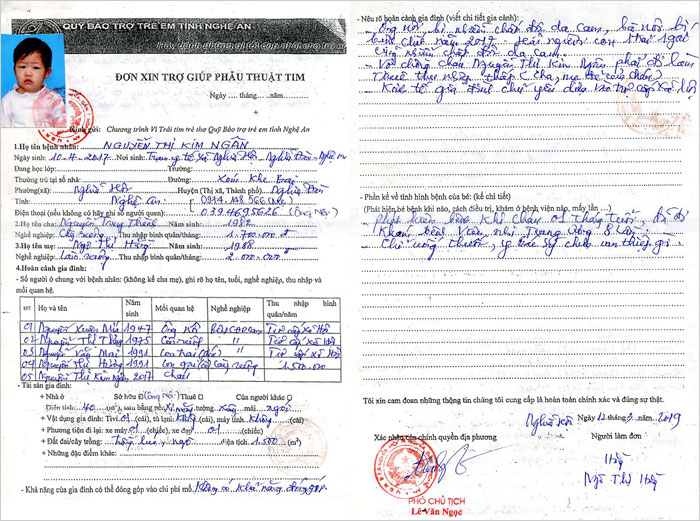 QUỸ BẢO TRỢ TRẺ EM TỈNH NGHỆ AN
ĐƠN XIN TRỢ GIÚP PHẪU THUẬT TIM
Ngày .... tháng.... năm........
Kính gửi: Chương trình Vì Trái tim trẻ thơ Quỹ Bảo trợ trẻ em tỉnh Nghệ An
1.Họ tên bệnh nhân: NGUYỄN THỊ KIM NGÂN
Ngày sinh: 10-4-2017 Nơi sinh: Trạm y tế Xã Nghĩa Hồi - Nghĩa Đàn - Nghệ An
Đang học lớp: Trường:
Thường trú tại số nhà Đường: Xóm Khe
Phường(xã): Nghĩa Hồi Huyện (Thị xã, Thành phố) Nghĩa Đàn
Tỉnh: Nghệ An
Điện thoại (nếu không có hãy ghi số người quen): 0394695626 (Ông Nội)
2.Họ tên cha: Năm sinh: 1982
Nghề nghiệp: Thu nhập bình quân/tháng: 1.700.000 đ
3.Họ tên mẹ: Ngô Thị Hằng Năm sinh: 1988
Nghề nghiệp: Làm ruộng Thu nhập bình quân/tháng: 2.000.000 đ
4.Hoàn cảnh gia đình:
- Số người ở chung với bệnh nhân: (không kể cha mẹ), ghi rõ họ tên, tuổi, nghề nghiệp, thu nhập và
mối quan hệ.
STT Họ và tên Năm sinh Mối quan hệ Nghề nghiệp Thu nhập bình quân/năm
01 Nguyễn Xuân 1947 Ông Nội Trợ cấp Xã Hội
02 Nguyễn Thị 1975 Con ruộng " Trợ cấp Xã Hội
03 Nguyễn Văn Mai 1991 Con trai " Trợ cấp Xã Hội
04 Nguyễn Thị 1991 Con gái ruộng 1.500.000
05 Nguyễn Thị Kim Ngân 2017 Cháu
- Tài sản gia đình:
+ Nhà ở Sở hữu (Ông Nội) Thuê Của người khác
Diện tích: 40 (m²), sàn bằng nền Xi măng tường xây mái ngói
+ Vật dụng gia đình: Tivi 01 (cái), tủ lạnh Không (cái), máy tính Không (cái)
+ Phương tiện đi lại: xe máy 01 (chiếc), xe đạp 01 (chiếc)
+ Đất đai/cây trồng: Trồng lúa, ngô diện tích 1.500 (m²)
+ Những đặc điểm khác:
- Khả năng của gia đình có thể đóng góp vào chi phí mổ: Không có khả năng đóng góp.
- Nêu rõ hoàn cảnh gia đình (viết chi tiết gia cảnh):
Ông Nội bị nhiễm chất độc da cam, bà nội bị
chết năm 2017. Hai người con trai gái
cũng nhiễm chất độc da cam.
- Vợ chồng cháu Nguyễn Thị Kim Ngân phải đi làm
Thuê thu nhập thấp (cha, mẹ đẻ của cháu)
- Kinh tế gia đình chủ yếu dựa vào trợ cấp Xã hội
- Phần kể về tình hình bệnh của bé: (kể chi tiết)
(Phát hiện bé bệnh khi nào, cách điều trị, khám ở bệnh viện nào, mấy lần ...)
Phát hiện bệnh khi cháu 01 tháng tuổi. Đã đi
Khám bệnh Viện nhi Trung Ương 8 lần.
- Chỉ uống thuốc, y bác sỹ chưa can thiệp gì.
Tôi xin cam đoan những thông tin chúng tôi cung cấp là hoàn toàn chính xác và đúng sự thật.
Nghĩa Hồi Ngày 12 tháng 3 năm 2019
Xác nhận của chính quyền địa phương Người làm đơn
Hằng
PHÓ CHỦ TỊCH
Lê Văn Ngọc
Ngô Thị Hằng